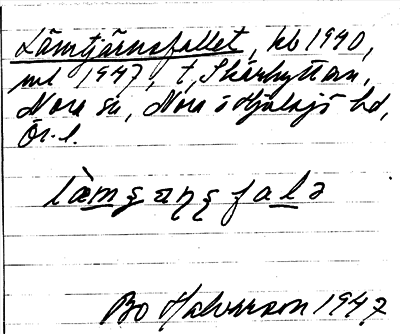 Lämtjärnsfallet, kb 1940,
ml 1947, t. Skärhyttan,
Nora sn, Nora o Hjulsjö bd,
Ör. l.
Bo Halvarson 1947